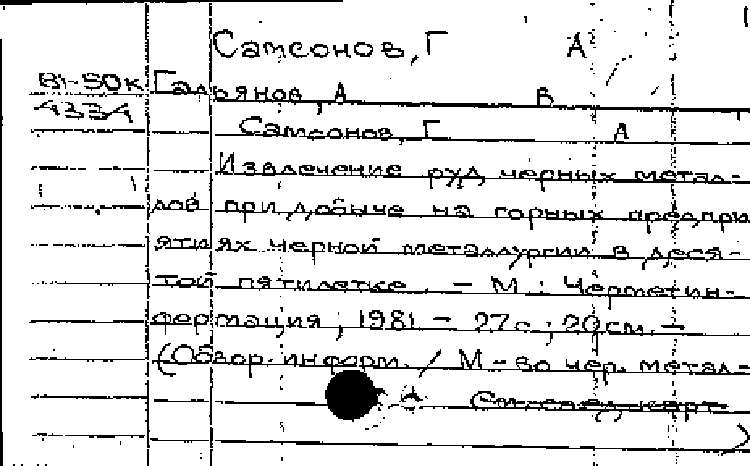 Самсонов, Г А
В1-50к Гальянов, А В
4334 Самсонов, Г А
Извлечение руд черных метал-
лов при добыче на горных предпри
ятиях черной металлургии в деся-
той пятилетке. – М : Черметин-
формация, 1981 – 27с.; 20см. –
(Обзор. информ. / М-во чер. метал-
См. след. карт.
)